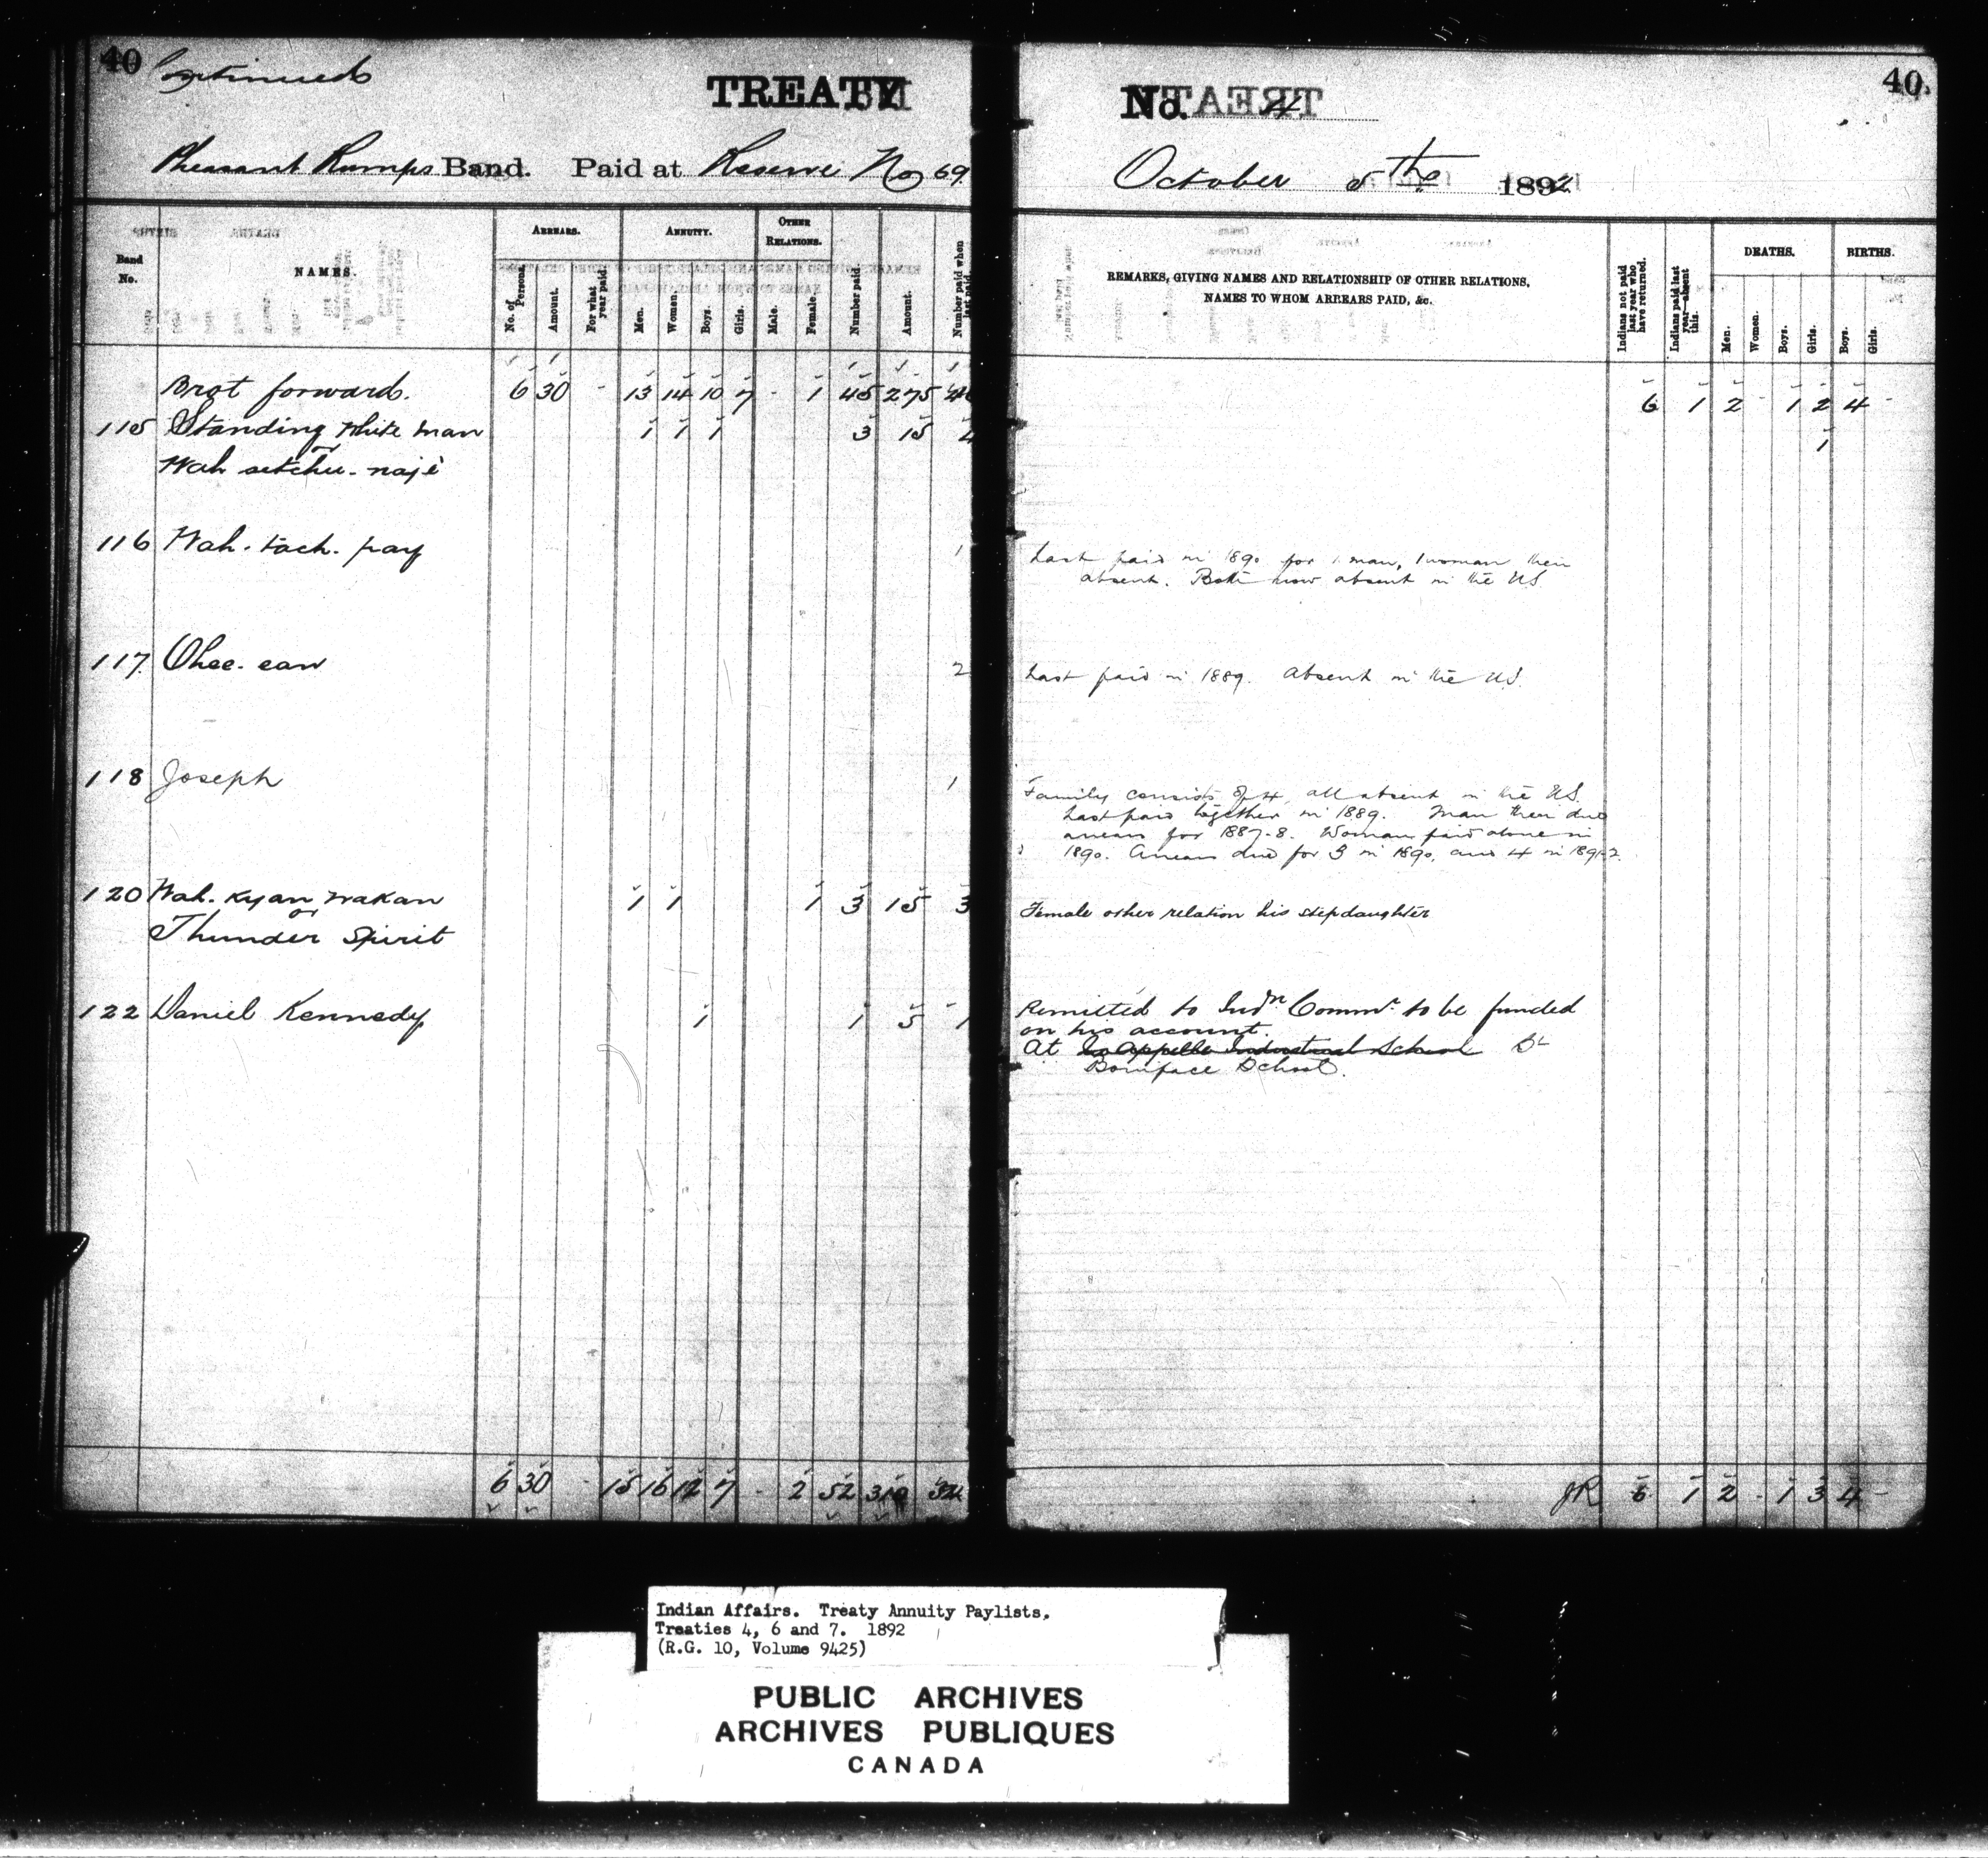 40 Continued
TREATY No. 4 40
Pheasant Rumps Band. Paid at Reserve No 69. October 5th 1892
Band No. NAMES. ARREARS. ANNUITY. OTHER RELATIONS. Number paid. Amount. Number paid when last paid.
No. of Persons. Amount. For what year paid. Men. Women. Boys. Girls. Male. Female.
REMARKS, GIVING NAMES AND RELATIONSHIP OF OTHER RELATIONS, NAMES TO WHOM ARREARS PAID, &c.
Indians not paid last year who have returned. Indians paid last year—absent this. DEATHS. BIRTHS.
Men. Women. Boys. Girls. Boys. Girls.
Brot forward. 6 30 - 13 14 10 7 - 1 45 275 6 1 2 - 1 2 4 -
115 Standing White Man 1 1 1 3 15 4 1
or
Wah setchu-najè
116 Wah-tach-pay 1 Last paid in 1890 for 1 man, 1 woman then
absent. Both now absent in the US
117. Ohee-ean 2 Last paid in 1889. Absent in the US.
118 Joseph 1 Family consists of 4, all absent in the US.
Last paid together in 1889. Man then due
arrears for 1887-8. Woman paid alone in
1890. Arrears due for 3 in 1890, and 4 in 1891-2.
120 Wah-kyan wakan 1 1 1 3 15 3 Female other relation his stepdaughter
or
Thunder Spirit
122 Daniel Kennedy 1 1 5 1 Remitted to Indn Commr. to be funded
on his account.
At Qu Appelle Industrial School St
Boniface School.
6 30 - 15 16 12 7 - 2 52 310 JR 6 1 2 - 1 3 4 -
Indian Affairs. Treaty Annuity Paylists.
Treaties 4, 6 and 7. 1892
(R.G. 10, Volume 9425)
PUBLIC ARCHIVES
ARCHIVES PUBLIQUES
CANADA